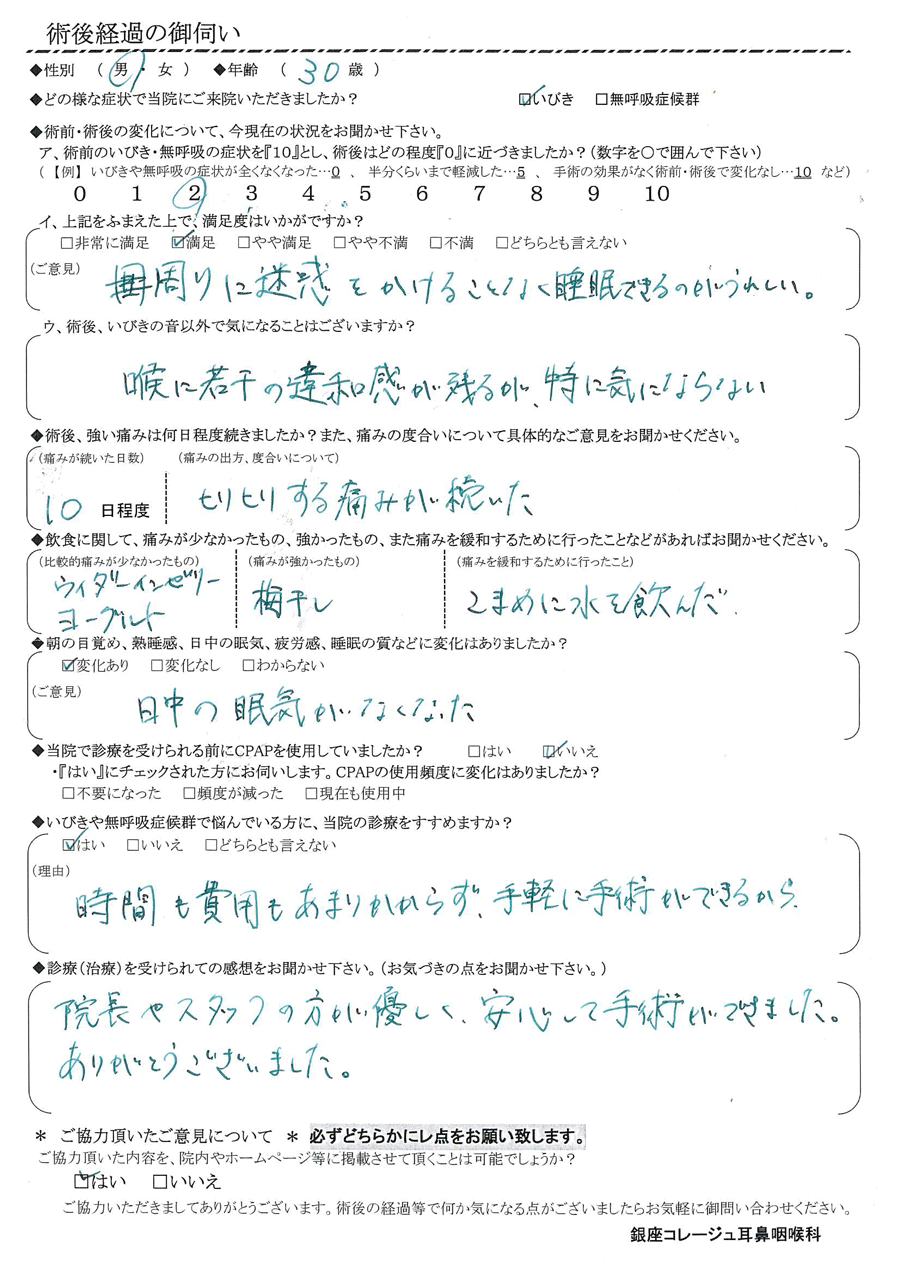 術後経過の御伺い
◆性別 （ 男 ・ 女 ） ◆年齢 （ 30 歳 ）
◆どの様な症状で当院にご来院いただきましたか？ ☑いびき □無呼吸症候群
◆術前・術後の変化について、今現在の状況をお聞かせ下さい。
ア、術前のいびき・無呼吸の症状を『10』とし、術後はどの程度『0』に近づきましたか？（数字を〇で囲んで下さい）
（【例】 いびきや無呼吸の症状が全くなくなった…0 、 半分くらいまで軽減した…5 、 手術の効果がなく術前・術後で変化なし…10 など）
0 1 2 3 4 5 6 7 8 9 10
イ、上記をふまえた上で、満足度はいかがですか？
□非常に満足 ☑満足 □やや満足 □やや不満 □不満 □どちらとも言えない
（ご意見） 周りに迷惑をかけることなく睡眠できるのがうれしい。
ウ、術後、いびきの音以外で気になることはございますか？
喉に若干の違和感が残るが、特に気にならない
◆術後、強い痛みは何日程度続きましたか？また、痛みの度合いについて具体的なご意見をお聞かせください。
（痛みが続いた日数） （痛みの出方、度合いについて）
10 日程度 ヒリヒリする痛みが続いた
◆飲食に関して、痛みが少なかったもの、強かったもの、また痛みを緩和するために行ったことなどがあればお聞かせください。
（比較的痛みが少なかったもの） （痛みが強かったもの） （痛みを緩和するために行ったこと）
ウィダーインゼリー
ヨーグルト 梅干し こまめに水を飲んだ。
◆朝の目覚め、熟睡感、日中の眠気、疲労感、睡眠の質などに変化はありましたか？
☑変化あり □変化なし □わからない
（ご意見） 日中の眠気がなくなった
◆当院で診療を受けられる前にCPAPを使用していましたか？ □はい ☑いいえ
・『はい』にチェックされた方にお伺いします。CPAPの使用頻度に変化はありましたか？
□不要になった □頻度が減った □現在も使用中
◆いびきや無呼吸症候群で悩んでいる方に、当院の診療をすすめますか？
☑はい □いいえ □どちらとも言えない
（理由）
時間も費用もあまりかからず、手軽に手術ができるから。
◆診療（治療）を受けられての感想をお聞かせ下さい。（お気づきの点をお聞かせ下さい。）
院長やスタッフの方が優しく、安心して手術ができました。
ありがとうございました。
＊ ご協力頂いたご意見について ＊ 必ずどちらかにレ点をお願い致します。
ご協力頂いた内容を、院内やホームページ等に掲載させて頂くことは可能でしょうか？
☑はい □いいえ
ご協力いただきましてありがとうございます。術後の経過等で何か気になる点がございましたらお気軽に御問い合わせください。
銀座コレージュ耳鼻咽喉科